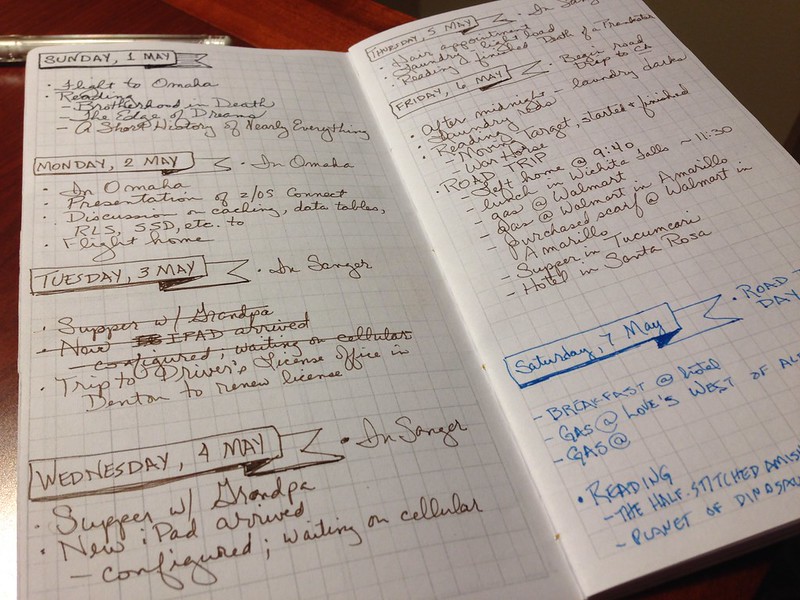 SUNDAY, 1 MAY
• Flight to Omaha
• Reading
- Brotherhood in Death
- The Edge of Dreams
- A Short History of Nearly Everything
MONDAY, 2 MAY • In Omaha
• In Omaha
• Presentation of z/OS Connect
• Discussion on caching, data tables,
RLS, SSD, etc. to
• Flight home
TUESDAY, 3 MAY • In Sanger
• Supper w/ Grandpa
• New IPAD arrived
- configured; waiting on cellular
• Trip to Driver's License Office in
Denton to renew license
WEDNESDAY, 4 MAY • In Sanger
• Supper w/ Grandpa
• New iPad arrived
- configured; waiting on cellular
THURSDAY, 5 MAY • In Sanger
• Hair appointment
• Laundry, light load
• Reading finished Death of a
FRIDAY, 6 MAY • Begin road
trip to CA
• After midnight - laundry darks
• Laundry reds
• Reading
- Moving Target, started & finished
- War Horse
• ROAD TRIP
- left home @ 9:40
- lunch in Wichita Falls ~ 11:30
- gas @ Walmart
- gas @ Walmart in Amarillo
- purchased scarf @ Walmart in
Amarillo
- Supper in Tucumcari
- Hotel in Santa Rosa
Saturday, 7 May • ROAD
DAY
- BREAKFAST @ hotel
- GAS @ LOVE'S WEST OF
- GAS @
• READING
- THE HALF-STITCHED AMISH
- PLANET OF